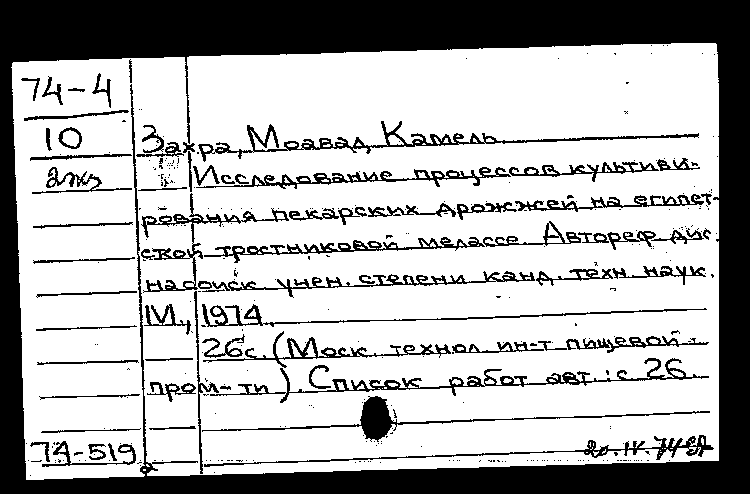 74-4
10
2 экз
Захра, Моавад Камель.
Исследование процессов культиви-
рования пекарских дрожжей на египет-
ской тростниковой мелассе. Автореф. дис.
на соиск. учен. степени канд. техн. наук.
М., 1974.
26с. (Моск. технол. ин-т пищевой
пром-ти). Список работ авт.: с 26.
74-519
20.IV.74